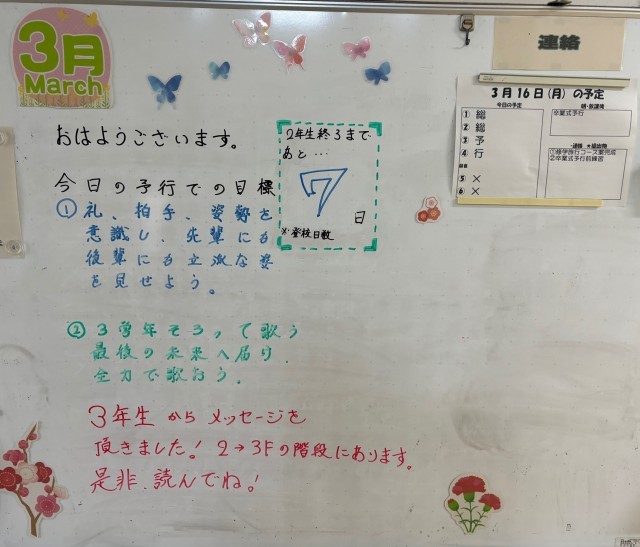 3月
March
連絡
3月16日(月)の予定
今日の予定
① 総
② 総
③ 予
④ 行
⑤ ×
⑥ ×
卒業式予行
①修学旅行コース案完成
②卒業式予行前練習
おはようございます。
2年生終るまで
あと…
7
日
※登校日数
今日の予行での目標
① 礼、拍手、姿勢を
意識し、先輩にも
後輩にも立派な姿
を見せよう。
② 3学年そろって歌う
最後の未来へ届け
全力で歌おう。
3年生からメッセージを
頂きました! 2→3Fの階段にあります。
是非、読んでね!